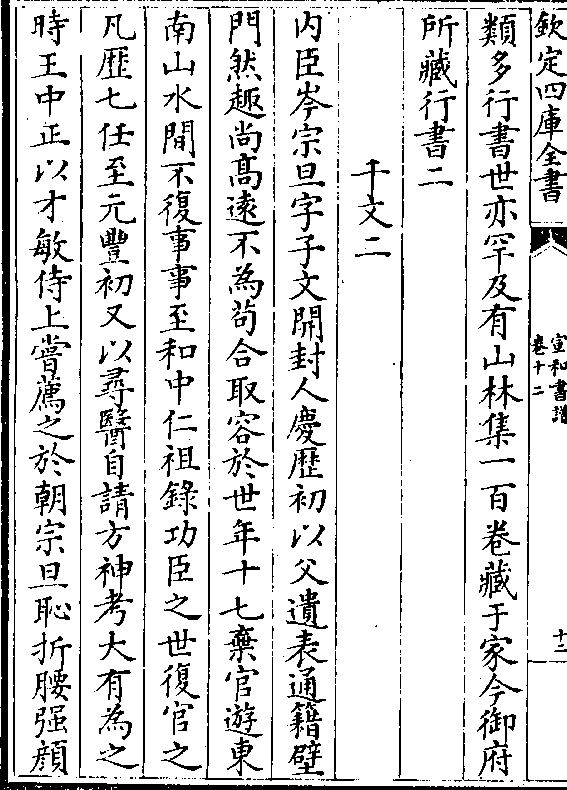 欽定四庫全書
宣和書譜
卷十二
十二
類多行書世亦罕及有山林集一百卷藏于家今御府
所藏行書二
千文二
内臣岑宗旦字子文開封人慶歴初以父遺表通籍壁
門然趣尚髙逺不為茍合取容於世年十七棄官遊東
南山水間不復事事至和中仁祖錄功臣之世復官之
凡歴七任至元豐初又以尋醫自請方神考大有為之
時王中正以才敏侍上嘗薦之於朝宗旦恥折腰强顔